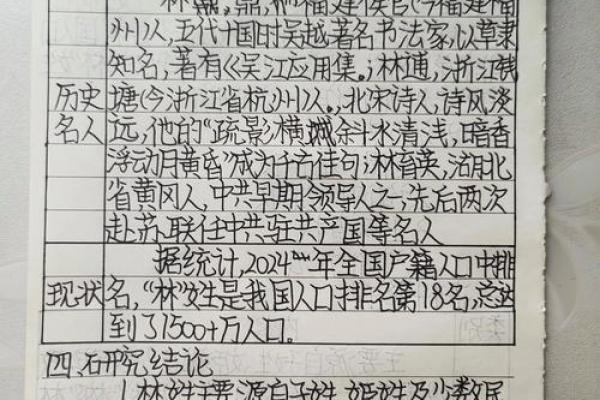 林鼐,鼎,州福建侯官(今福建福
州)人,五代十国时吴越著名书法家,以草隶
知名,著有《吴江应用集》;林逋,浙江钱
历史 塘(今浙江省杭州)人。北宋诗人,诗风淡
名人 远,他的"疏影横斜水清浅,暗香
浮动月黄昏"成为千古佳句;林育英,湖北
省黄冈人,中共早期领导人之一,先后两次
赴苏联任中共驻共产国等名人
据统计,2024年全国户籍人口中排
现状 名,"林"姓是我国人口排名第18名,总达
到了1500+万人口。
四.研究结论
1.林姓主要源自子姓、姬姓及少数民